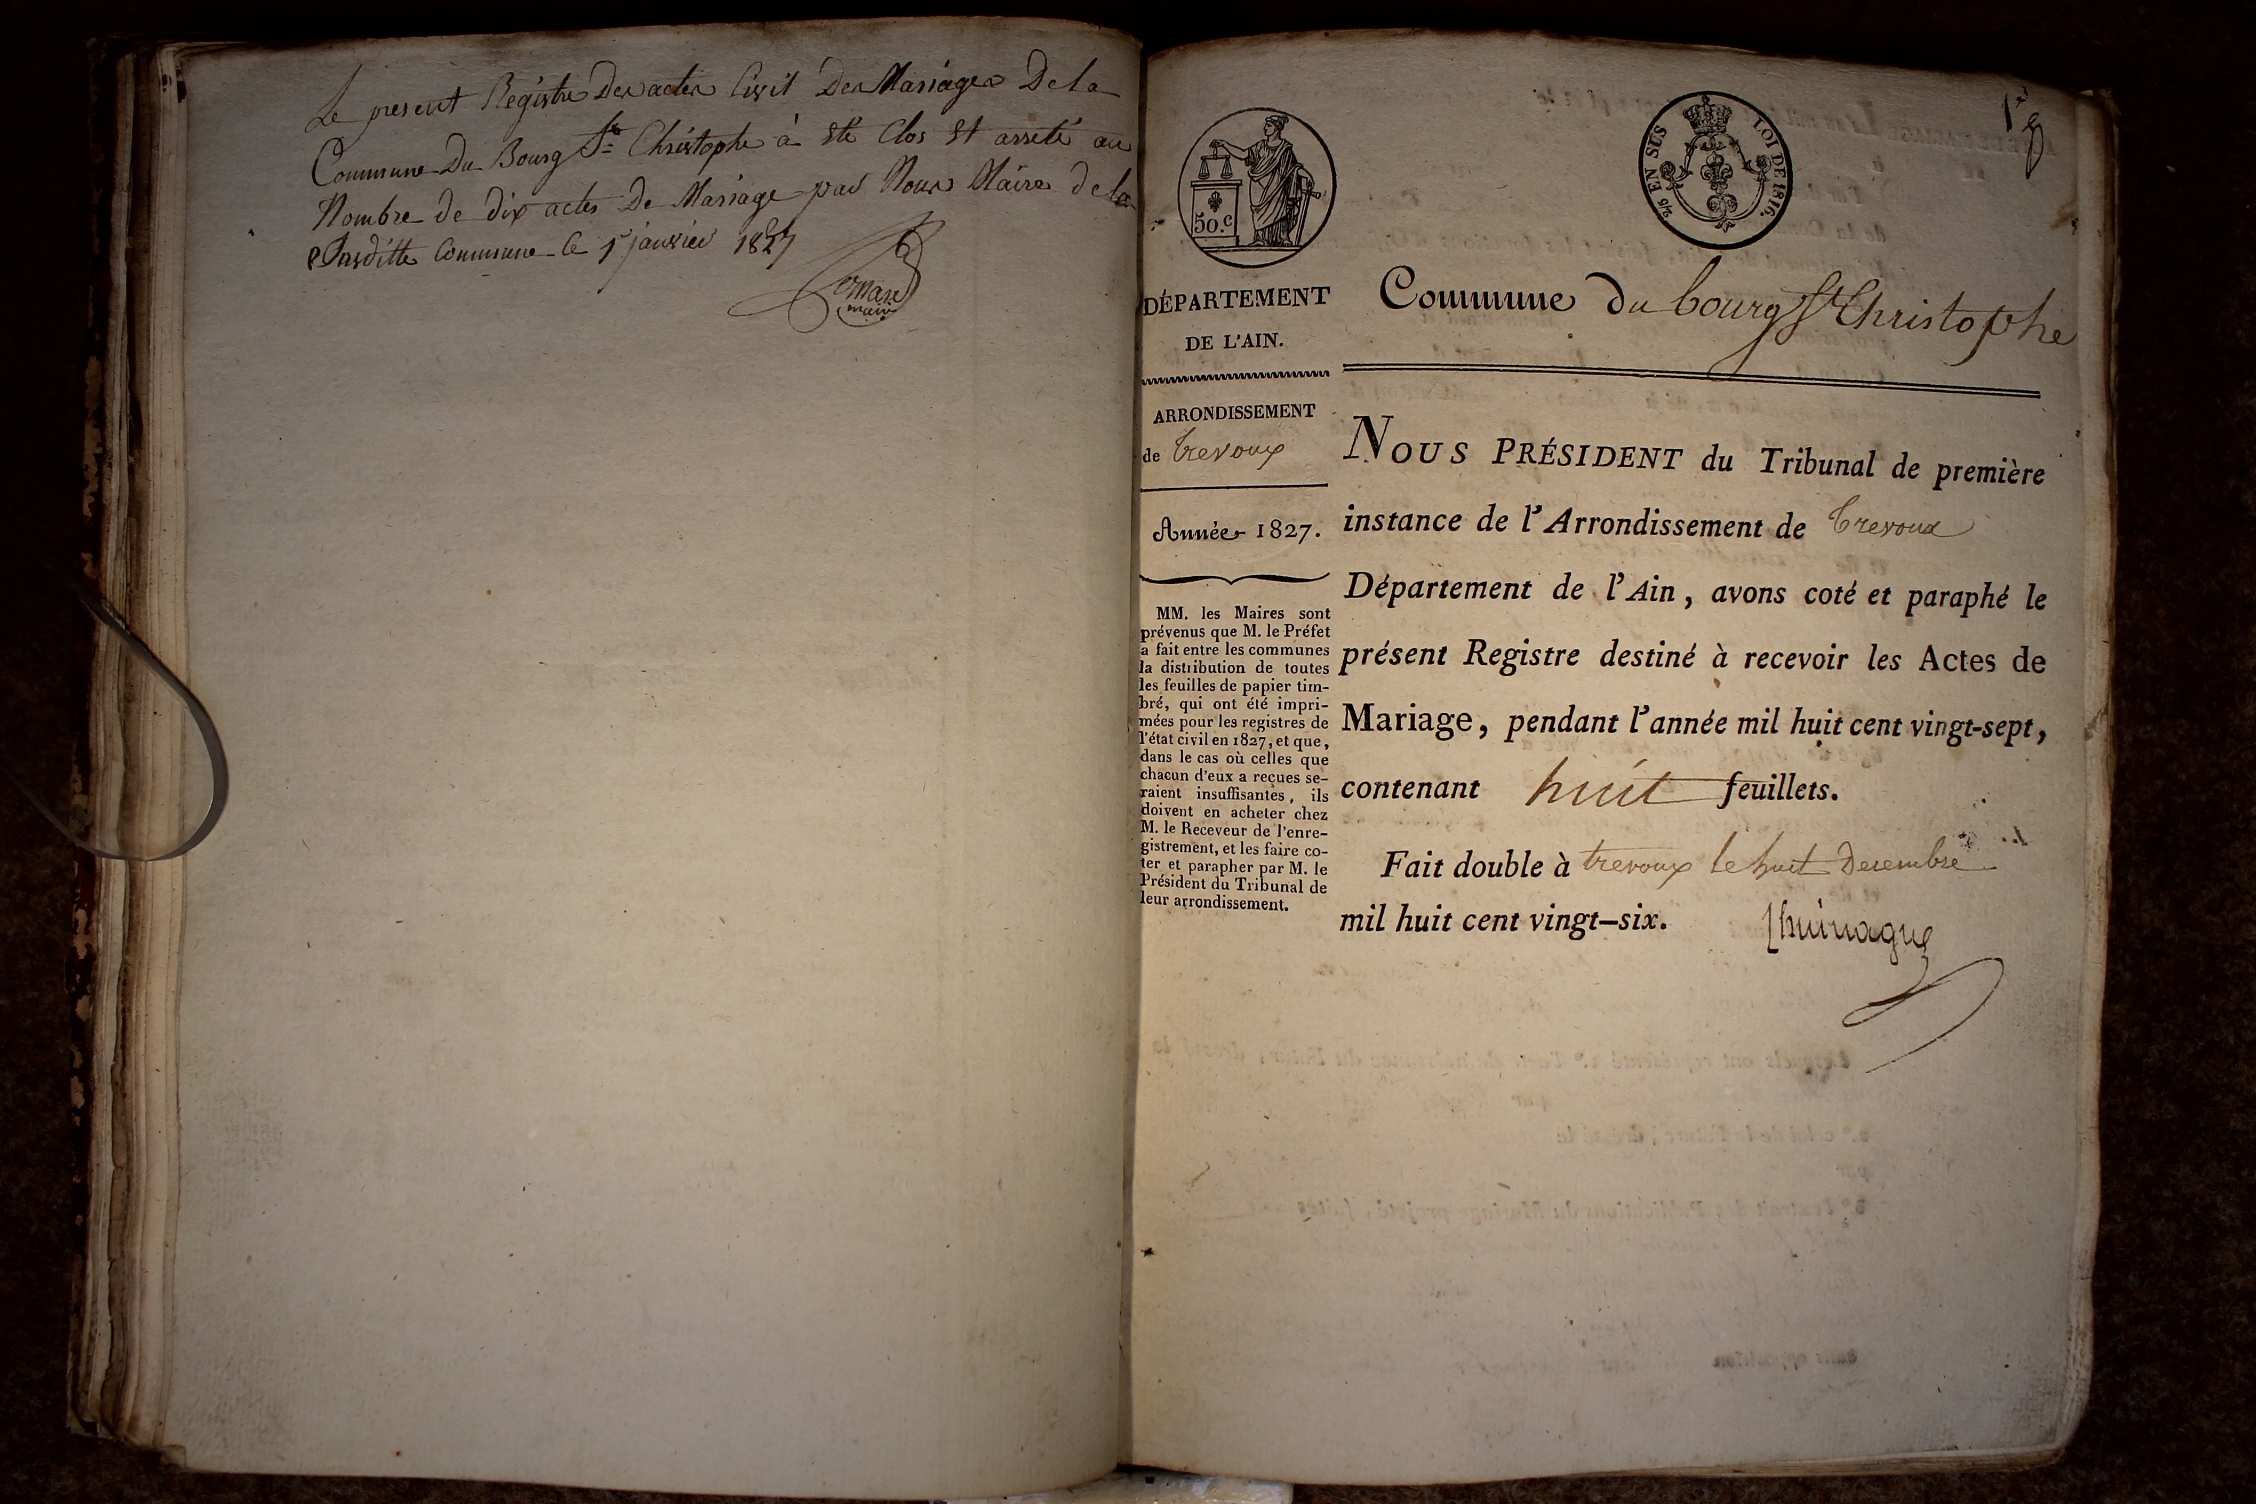 Le present Registre Des actes Civil Des Mariages De la
Commune Du Bourg St Christophe à eté Clos Et arreté au
Nombre de dix actes De Mariage par Nous Maire de la
Susditte Commune le 1r janvier 1827
maire
50.C
2/10 EN SUS
LOI DE 1816.
1r
8
DÉPARTEMENT
DE L'AIN.
ARRONDISSEMENT
de trevoux
Année 1827.
MM. les Maires sont
prévenus que M. le Préfet
a fait entre les communes
la distribution de toutes
les feuilles de papier tim-
bré, qui ont été impri-
mées pour les registres de
l'état civil en 1827, et que,
dans le cas où celles que
chacun d'eux a reçues se-
raient insuffisantes, ils
doivent en acheter chez
M. le Receveur de l'enre-
gistrement, et les faire co-
ter et parapher par M. le
Président du Tribunal de
leur arrondissement.
Commune du bourg St Christophe
NOUS PRÉSIDENT du Tribunal de première
instance de l'Arrondissement de trevoux
Département de l'Ain, avons coté et paraphé le
présent Registre destiné à recevoir les Actes de
Mariage, pendant l'année mil huit cent vingt-sept,
contenant huit feuillets.
Fait double à trevoux le huit Decembre
mil huit cent vingt-six.